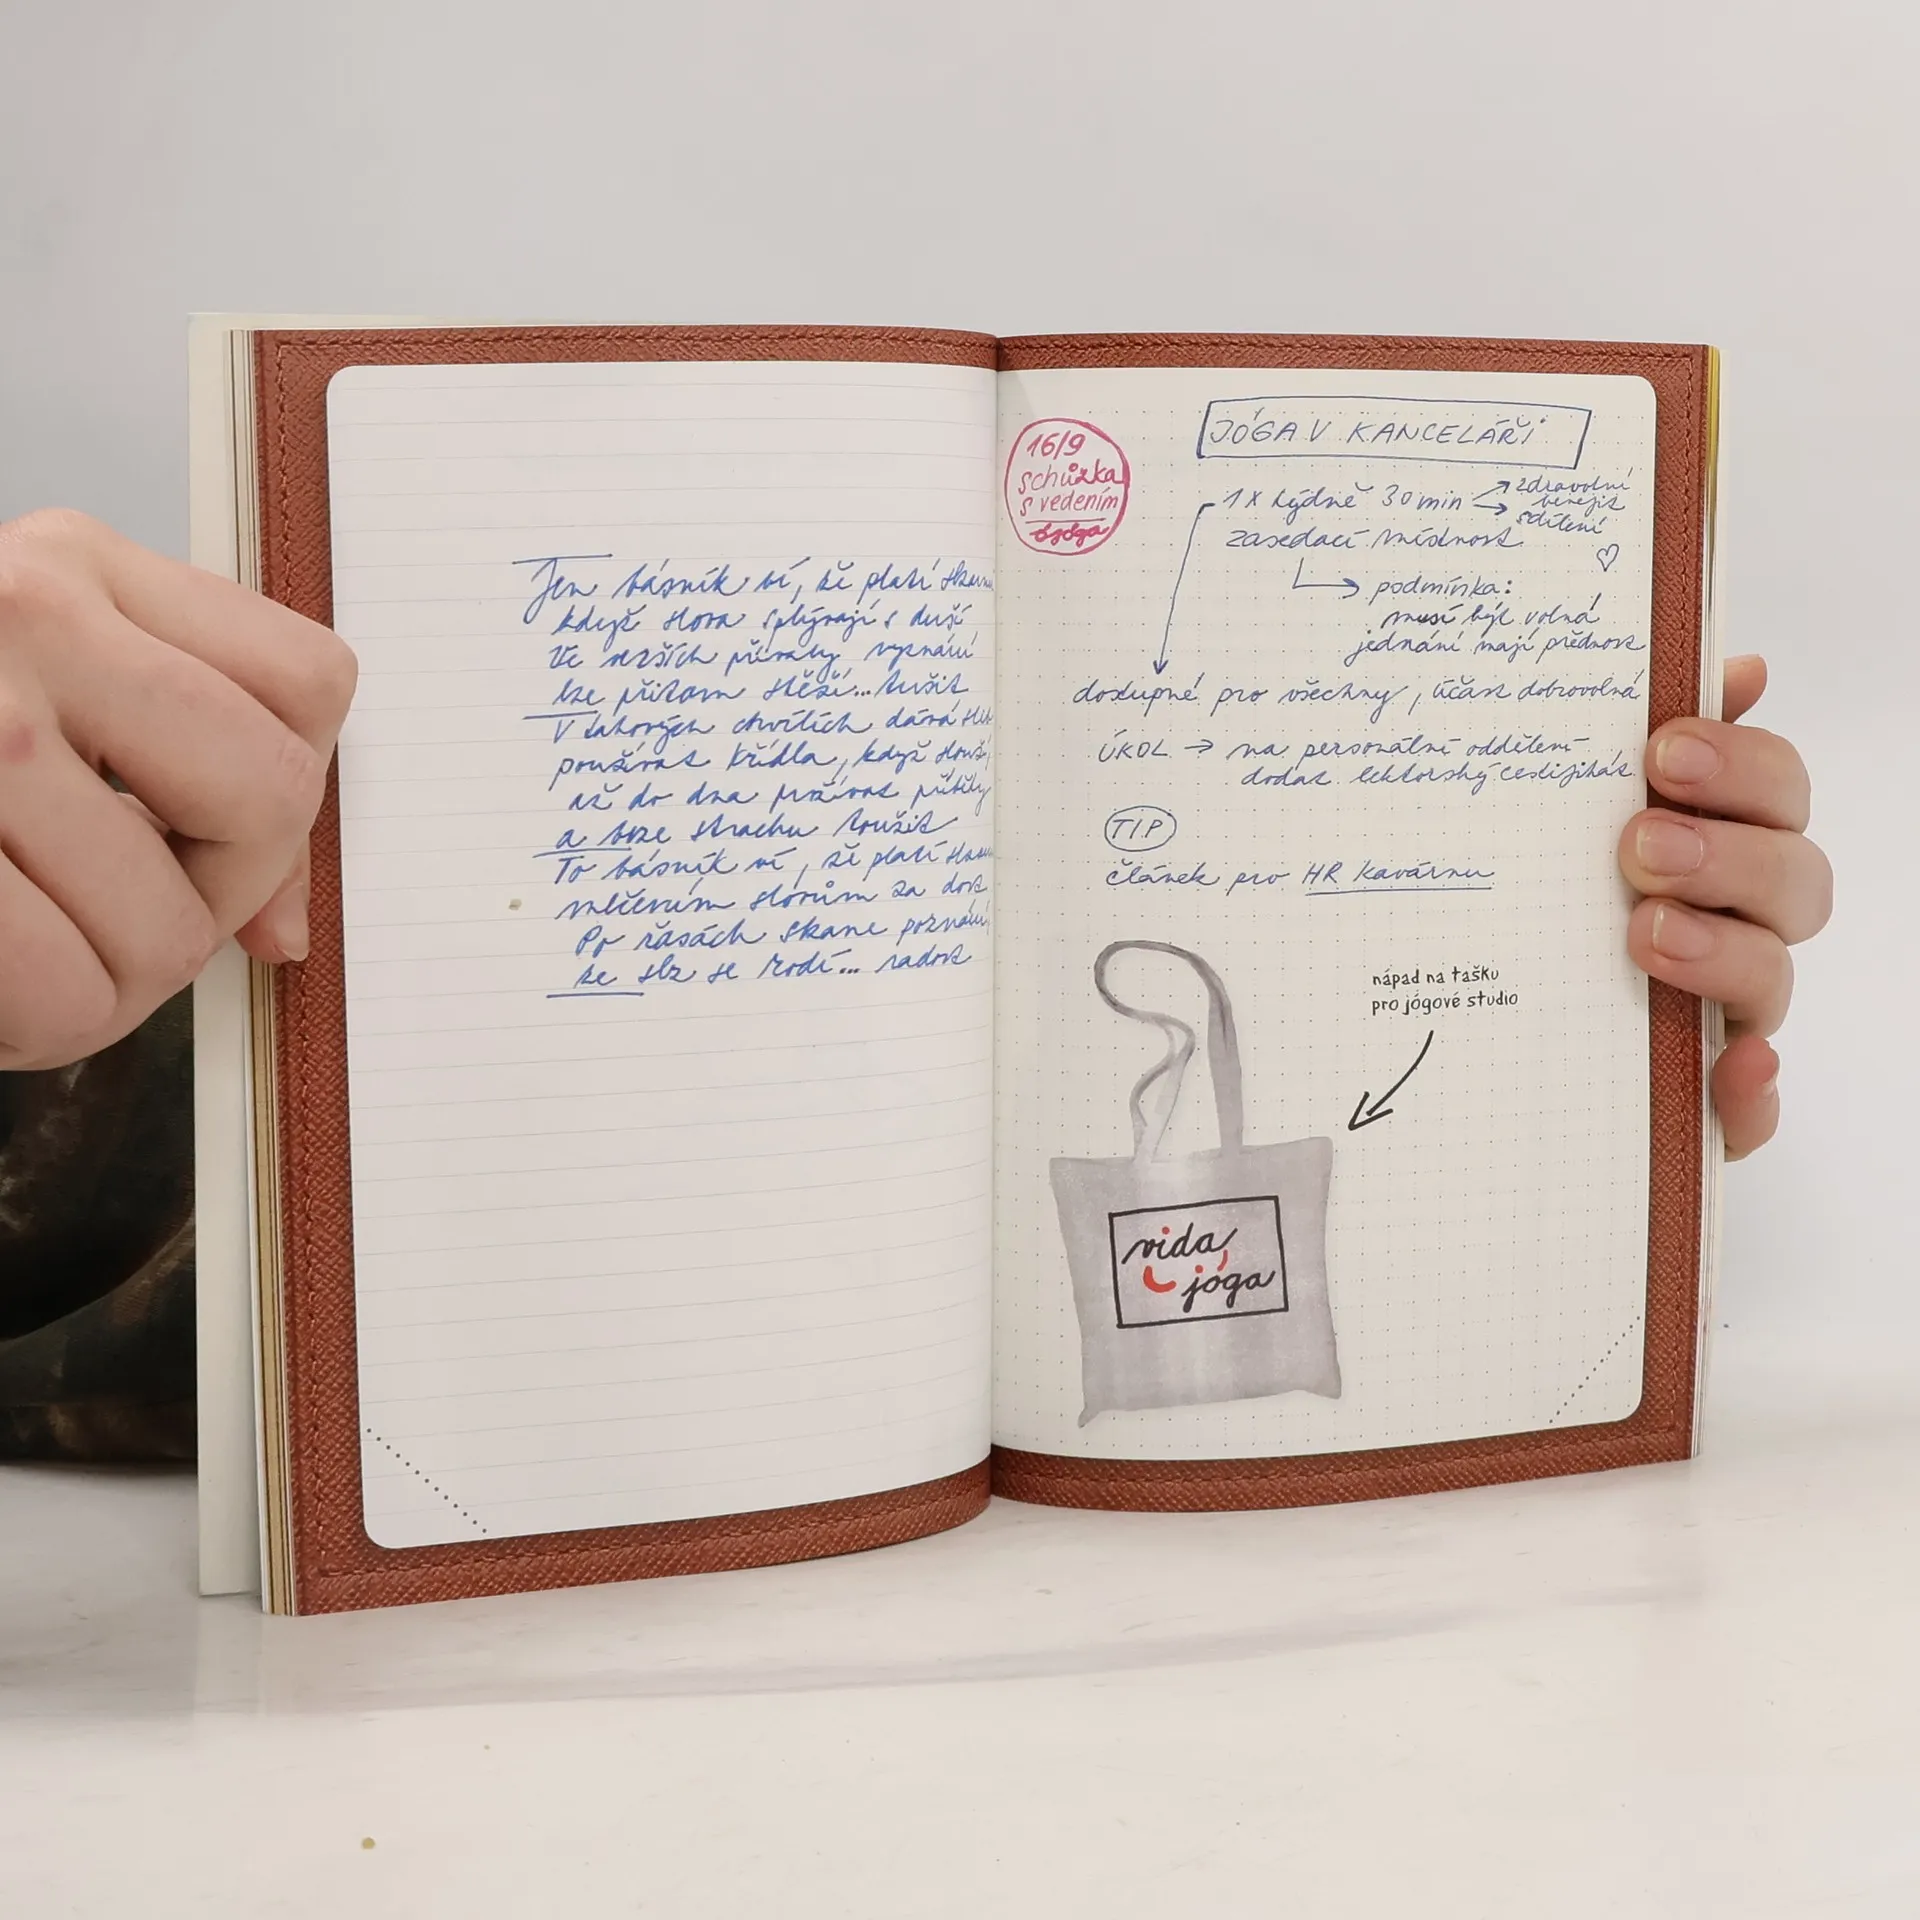 Jen básník ví, že platí
když slova splývají s duší
Ve verších přívaly vyznání
lze přitom stěží... tušit
V takových chvílích dává
používat křídla, když sluší,
až do dna prožívat příběhy
a beze strachu toužit
To básník ví, že platí
mlčením slovům za dost
Po řasách skane poznání,
že slz se rodí... radost
16/9
schůzka
s vedením
JÓGA V KANCELÁŘI
1x týdně 30 min
zdravotní
benefit
sdílení
zasedací místnost
podmínka:
musí být volná
jednání mají přednost
dostupné pro všechny, účast dobrovolná
ÚKOL → na personální oddělení
dodat lektorský certifikát
TIP
článek pro HR Kavárnu
nápad na tašku
pro jógové studio
vida
jóga